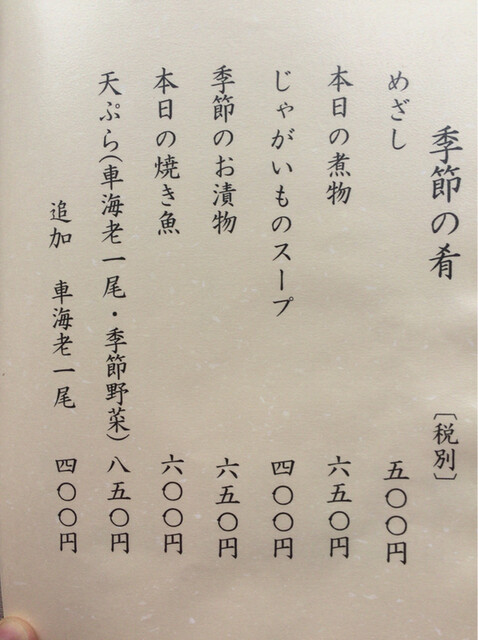 季節の肴 〔税別〕
めざし 五〇〇円
本日の煮物 六五〇円
じゃがいものスープ 四〇〇円
季節のお漬物 六五〇円
本日の焼き魚 六〇〇円
天ぷら(車海老一尾・季節野菜) 八五〇円
追加 車海老一尾 四〇〇円